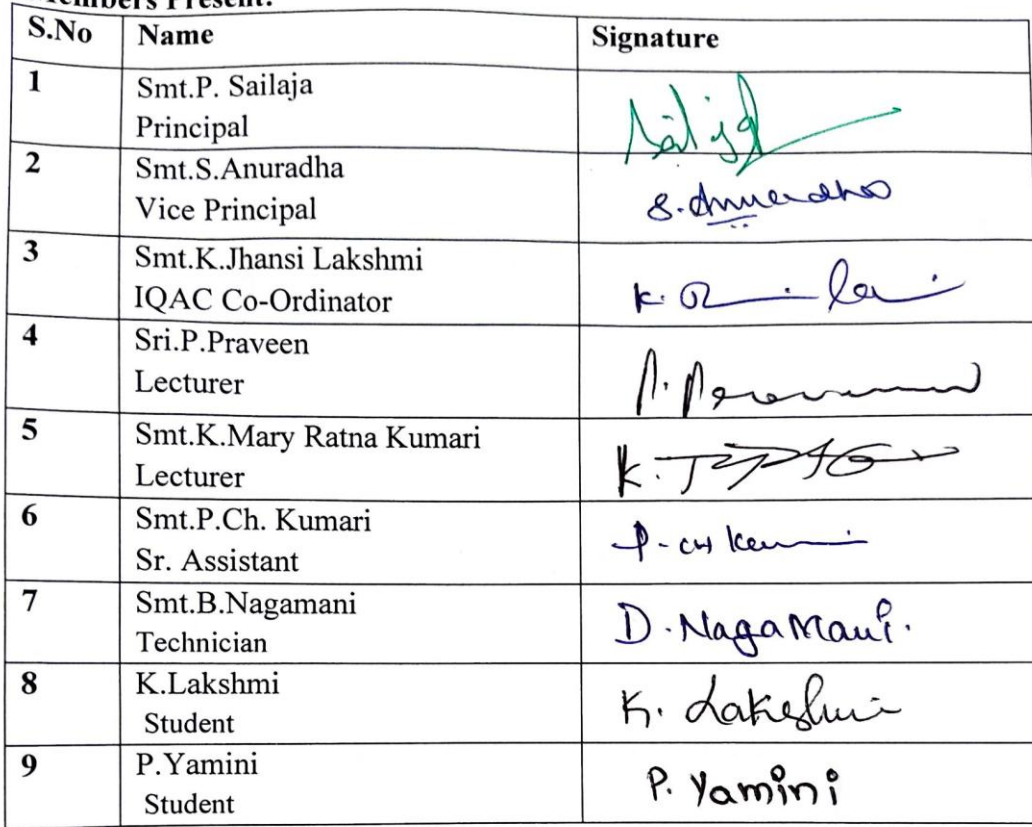 Members Present:
S.No Name Signature
1 Smt.P. Sailaja
Principal
2 Smt.S.Anuradha
Vice Principal
S. Anuradha
3 Smt.K.Jhansi Lakshmi
IQAC Co-Ordinator
K.
4 Sri.P.Praveen
Lecturer
5 Smt.K.Mary Ratna Kumari
Lecturer
K.
6 Smt.P.Ch. Kumari
Sr. Assistant
P. CH
7 Smt.B.Nagamani
Technician
D. NagaMani.
8 K.Lakshmi
Student
K. Lakshmi
9 P.Yamini
Student
P. Yamini